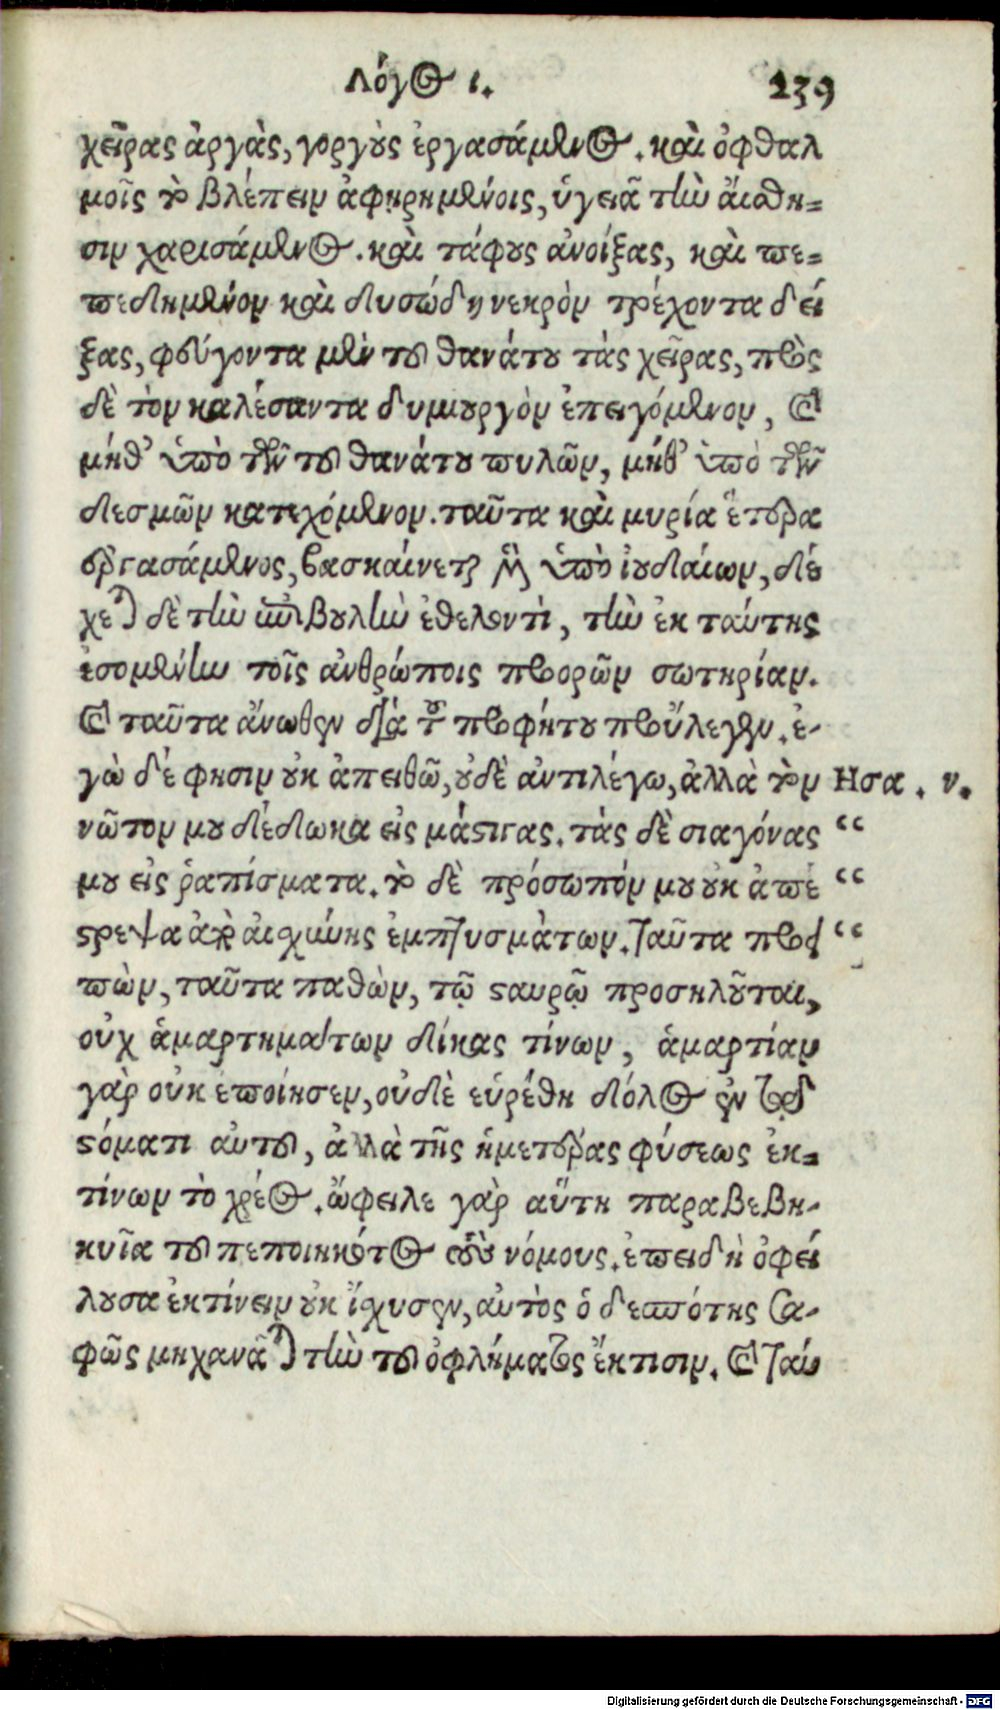 Λόγος ι. 239
χεῖρας ἀργὰς, γοργοὺς ἐργασάμενος. καὶ ὀφθαλ
μοῖς τὸ βλέπειν ἀφῃρημένοις, ὑγειᾶ τὴν αἴσθη=
σιν χαρισάμενος. καὶ τάφους ἀνοίξας, καὶ πε=
πεδημένον καὶ δυσώδη νεκρὸν τρέχοντα δεί
ξας, φεύγοντα μὲν τοῦ θανάτου τὰς χεῖρας, πρὸς
δὲ τὸν καλέσαντα δημιουργὸν ἐπειγόμενον, καὶ
μήθ' ὑπὸ τῶν τοῦ θανάτου πυλῶν, μήθ' ὑπὸ τῶν
δεσμῶν κατεχόμενον. ταῦτα καὶ μυρία ἕτερα
ἐργασάμενος, βασκαίνεται μὲν ὑπὸ ἰουδαίων, δέ
χεται δὲ τὴν ἐπιβουλὴν ἐθελοντὶ, τὴν ἐκ ταύτης
ἐσομένην τοῖς ἀνθρώποις προορῶν σωτηρίαν.
καὶ ταῦτα ἄνωθεν διὰ τοῦ προφήτου προὔλεγεν. ἐ-
γὼ δέ φησιν οὐκ ἀπειθῶ, οὐδὲ ἀντιλέγω, ἀλλὰ τὸν Ησα. ν.
νῶτον μου δέδωκα εἰς μάστιγας. τὰς δὲ σιαγόνας “
μου εἰς ῥαπίσματα. τὸ δὲ πρόσωπόν μου οὐκ ἀπέ “
στρεψα ἀπὸ αἰσχύνης ἐμπτυσμάτων. ταῦτα προει “
πὼν, ταῦτα παθὼν, τῷ σαυρῷ προσηλοῦται,
οὐχ ἁμαρτημάτων δίκας τίνων, ἁμαρτίαν
γὰρ οὐκ ἐποίησεν, οὐδὲ εὑρέθη δόλος ἐν τῷ
στόματι αὐτοῦ, ἀλλὰ τῆς ἡμετέρας φύσεως ἐκ=
τίνων τὸ χρέος. ὤφειλε γὰρ αὕτη παραβεβη-
κυῖα τοῦ πεποιηκότος τοὺς νόμους. ἐπειδὴ ὀφεί
λουσα ἐκτίνειν οὐκ ἴσχυσεν, αὐτὸς ὁ δεσπότης σα-
φῶς μηχανᾶται τὴν τοῦ ὀφλήματος ἔκτισιν. καὶ ταύ
Digitalisierung gefördert durch die Deutsche Forschungsgemeinschaft - DFG